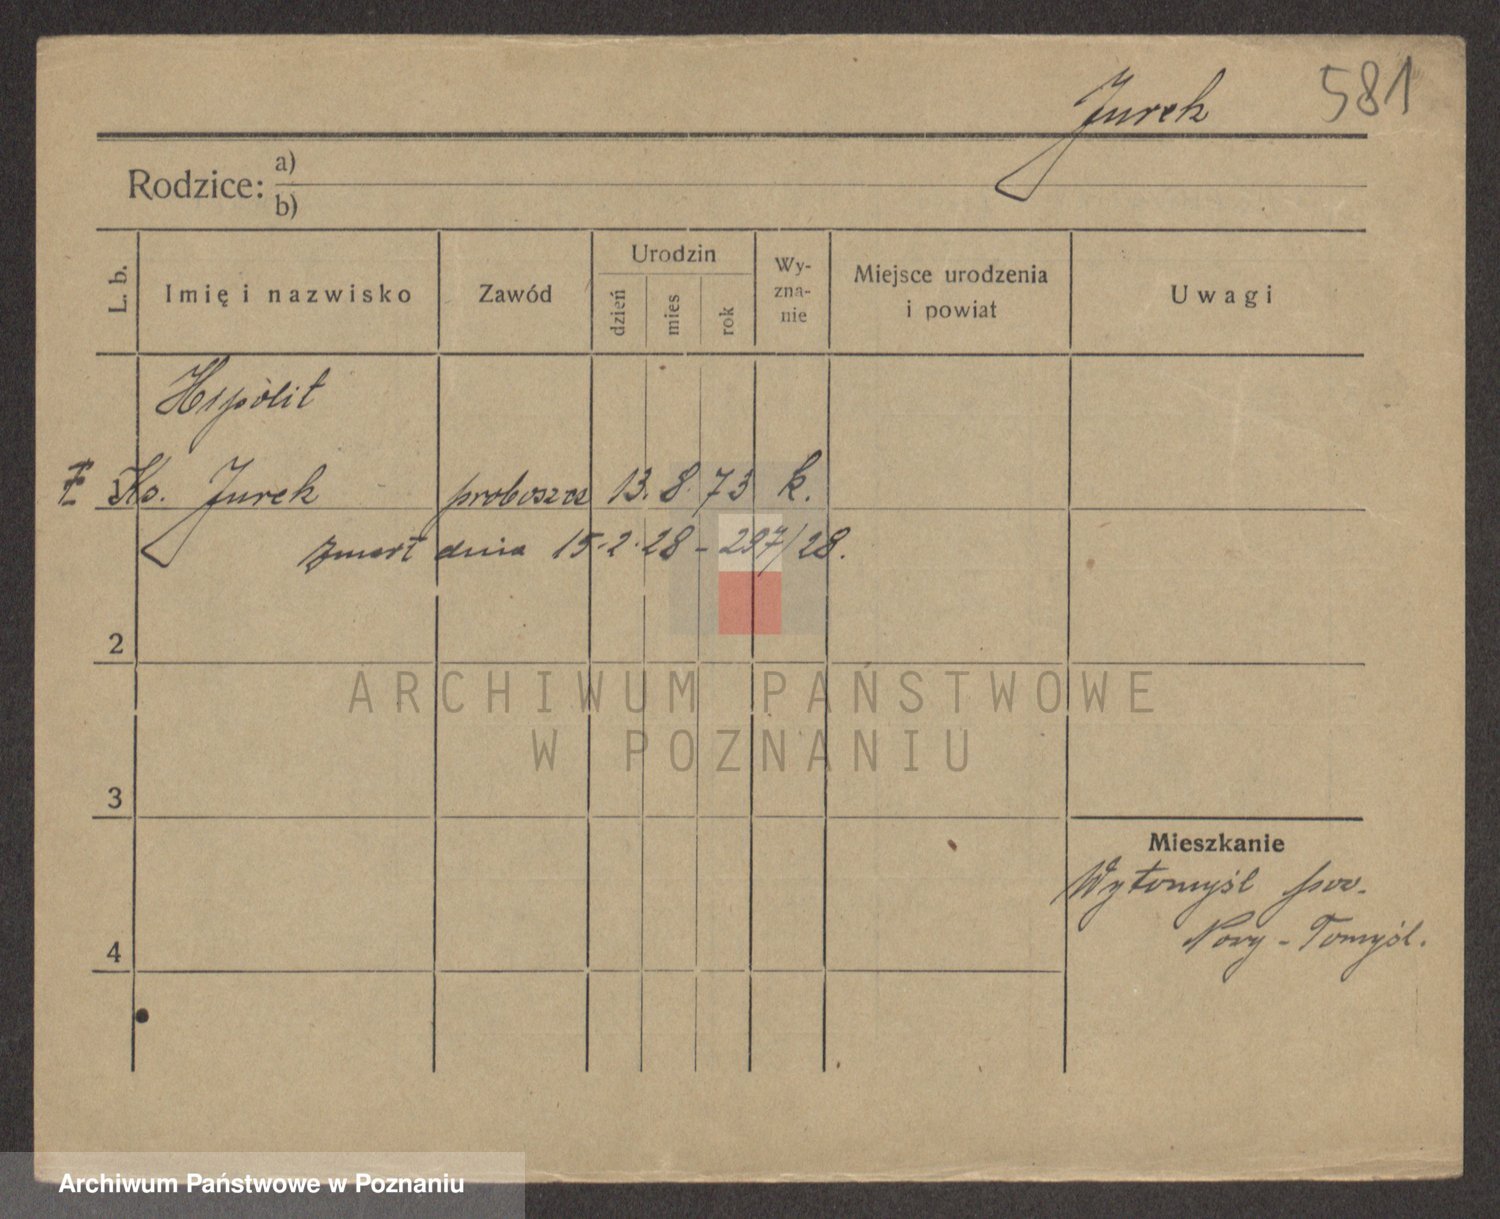 Jurek 581
Rodzice: a)
b)
L. b.
Imię i nazwisko
Zawód
Urodzin
dzień
mies
rok
Wy-
zna-
nie
Miejsce urodzenia
i powiat
Uwagi
Hipolit
Ks. Jurek proboszcz 13. 8. 73 k.
zmarł dnia 15.2.28 - 297/28.
2
ARCHIWUM PAŃSTWOWE
W POZNANIU
3
Mieszkanie
Wytomyśl pow.
Nowy-Tomyśl.
4
Archiwum Państwowe w Poznaniu